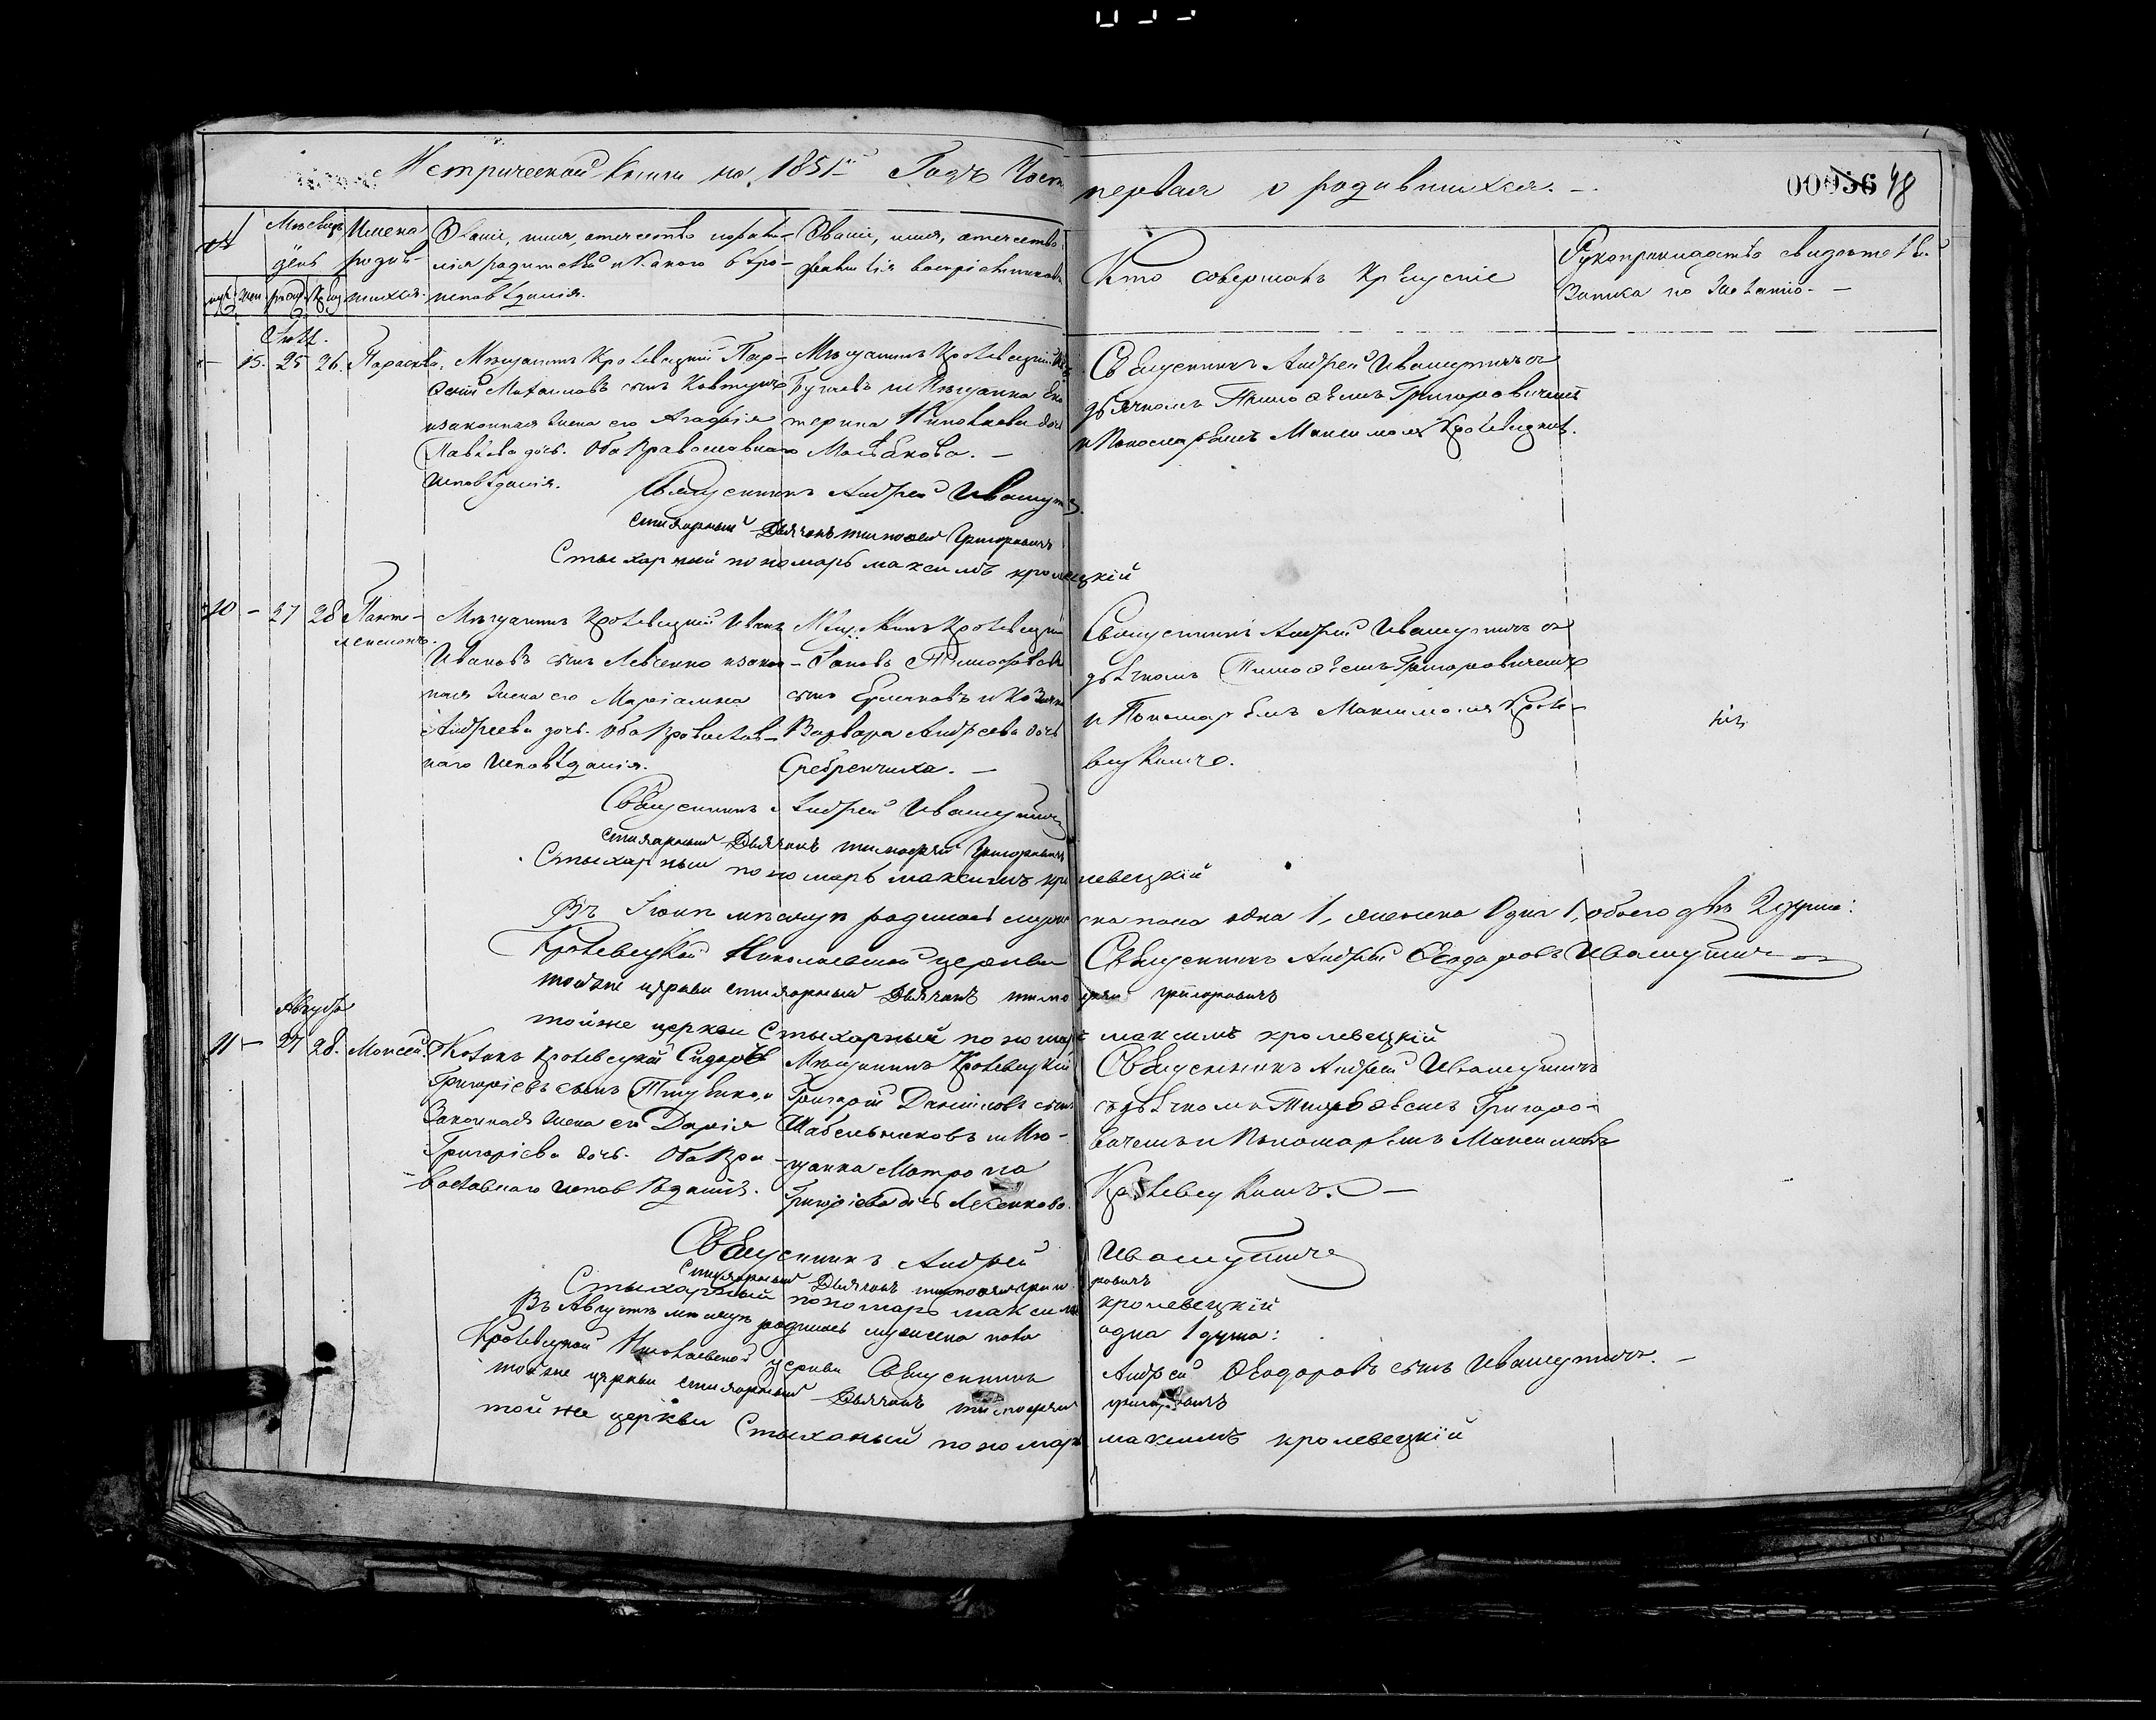 Метрической книги на 1851й Годъ Часть первая о родившихся. -
00956 48
Мѣсяцъ день
Имена родив-шихся.
Званіе, имя, отечество и фами-
лія родителей и какого вѣро-
исповѣданія.
Званіе, имя, отечество
фамилія воспріемниковъ
Кто совершалъ крещеніе
Рукоприкладство свидѣтелей
записки по желанію. -
муж. жен. рожд. крещ.
- 15. 25 26. Параскева.
Мѣщанинъ Кролевецкій Пар-
Михаиловъ сынъ Ковтунъ
и законная жена его Агафія
Павлова дочь. Оба православнаго
исповѣданія.
Мѣщанинъ Кролевецкій
и мѣщанка Ека
терина Николаева дочь
Священникъ Андрей Ивашутичъ съ
дьячкомъ Тимофѣемъ Григоровичемъ
и Пономаремъ Максимомъ Кролевецкимъ.
Священникъ Андрей Ивашутичъ.
стихарный Дьячокъ тимофей Григоровичъ
Стыхарный пономарь максимъ кролевецкій
10 - 27 28 Панте-
леимонъ.
Мѣщанинъ Кролевецкій Иванъ
Ивановъ сынъ Левченко и закон-
ная жена его Маріамна
Андреева дочь. Оба православ-
наго исповѣданія.
Мѣщанинъ Кролевецкій
Яковъ Тимофеевъ
сынъ Ермаковъ и козачка
Варвара Андреева дочь
Сребренчиха. -
Священникъ Андрей Ивашутичъ съ
дьячкомъ Тимофѣемъ Григоровичемъ
и Пономаремъ Максимомъ Кроле-
вецкимъ.
Священникъ Андрей Ивашутичъ
стихарный Дьячокъ тимофей Григоровичъ
Стыхарный пономарь максимъ кролевецкій
Въ Іюлѣ мѣсяцѣ родилось мужеска пола одна 1, женска одна 1, обоего двѣ 2 души:
Кролевецкой Николаевской церкви Священникъ Андрей Феодоровъ Ивашутичъ
тойже церкви стихарный Дьячокъ тимофей григоровичъ
тойже церкви Стыхарный пономарь максимъ кролевецкій
Августъ
11 - 27 28. Моисей.
Козакъ Кролевецкій Сидоръ
Григоріевъ сынъ и
законная жена его Дарія
Григоріева дочь. Оба пра-
вославнаго исповѣданія.
Мѣщанинъ Кролевецкій
Григорій Даниловъ сынъ
Шабельниковъ и мѣ-
щанка Матрона
Григоріева дочь
Священникъ Андрей Ивашутичъ
съ дьячкомъ Тимофѣемъ Григоро-
вичемъ и Пономаремъ Максимомъ
Кролевецкимъ. -
Священникъ Андрей Ивашутичъ
Стихарный Дьячокъ тимофей григоровичъ
Стыхарный пономарь максимъ кролевецкій
Въ Августѣ мѣсяцѣ родилось мужеска пола одна 1 душа:
Кролевецкой Николаевской церкви Священникъ Андрей Феодоровъ сынъ Ивашутичъ. -
тойже церкви стихарный Дьячокъ тимофей григоровичъ
той же церкви Стыханый пономарь максимъ кролевецкій